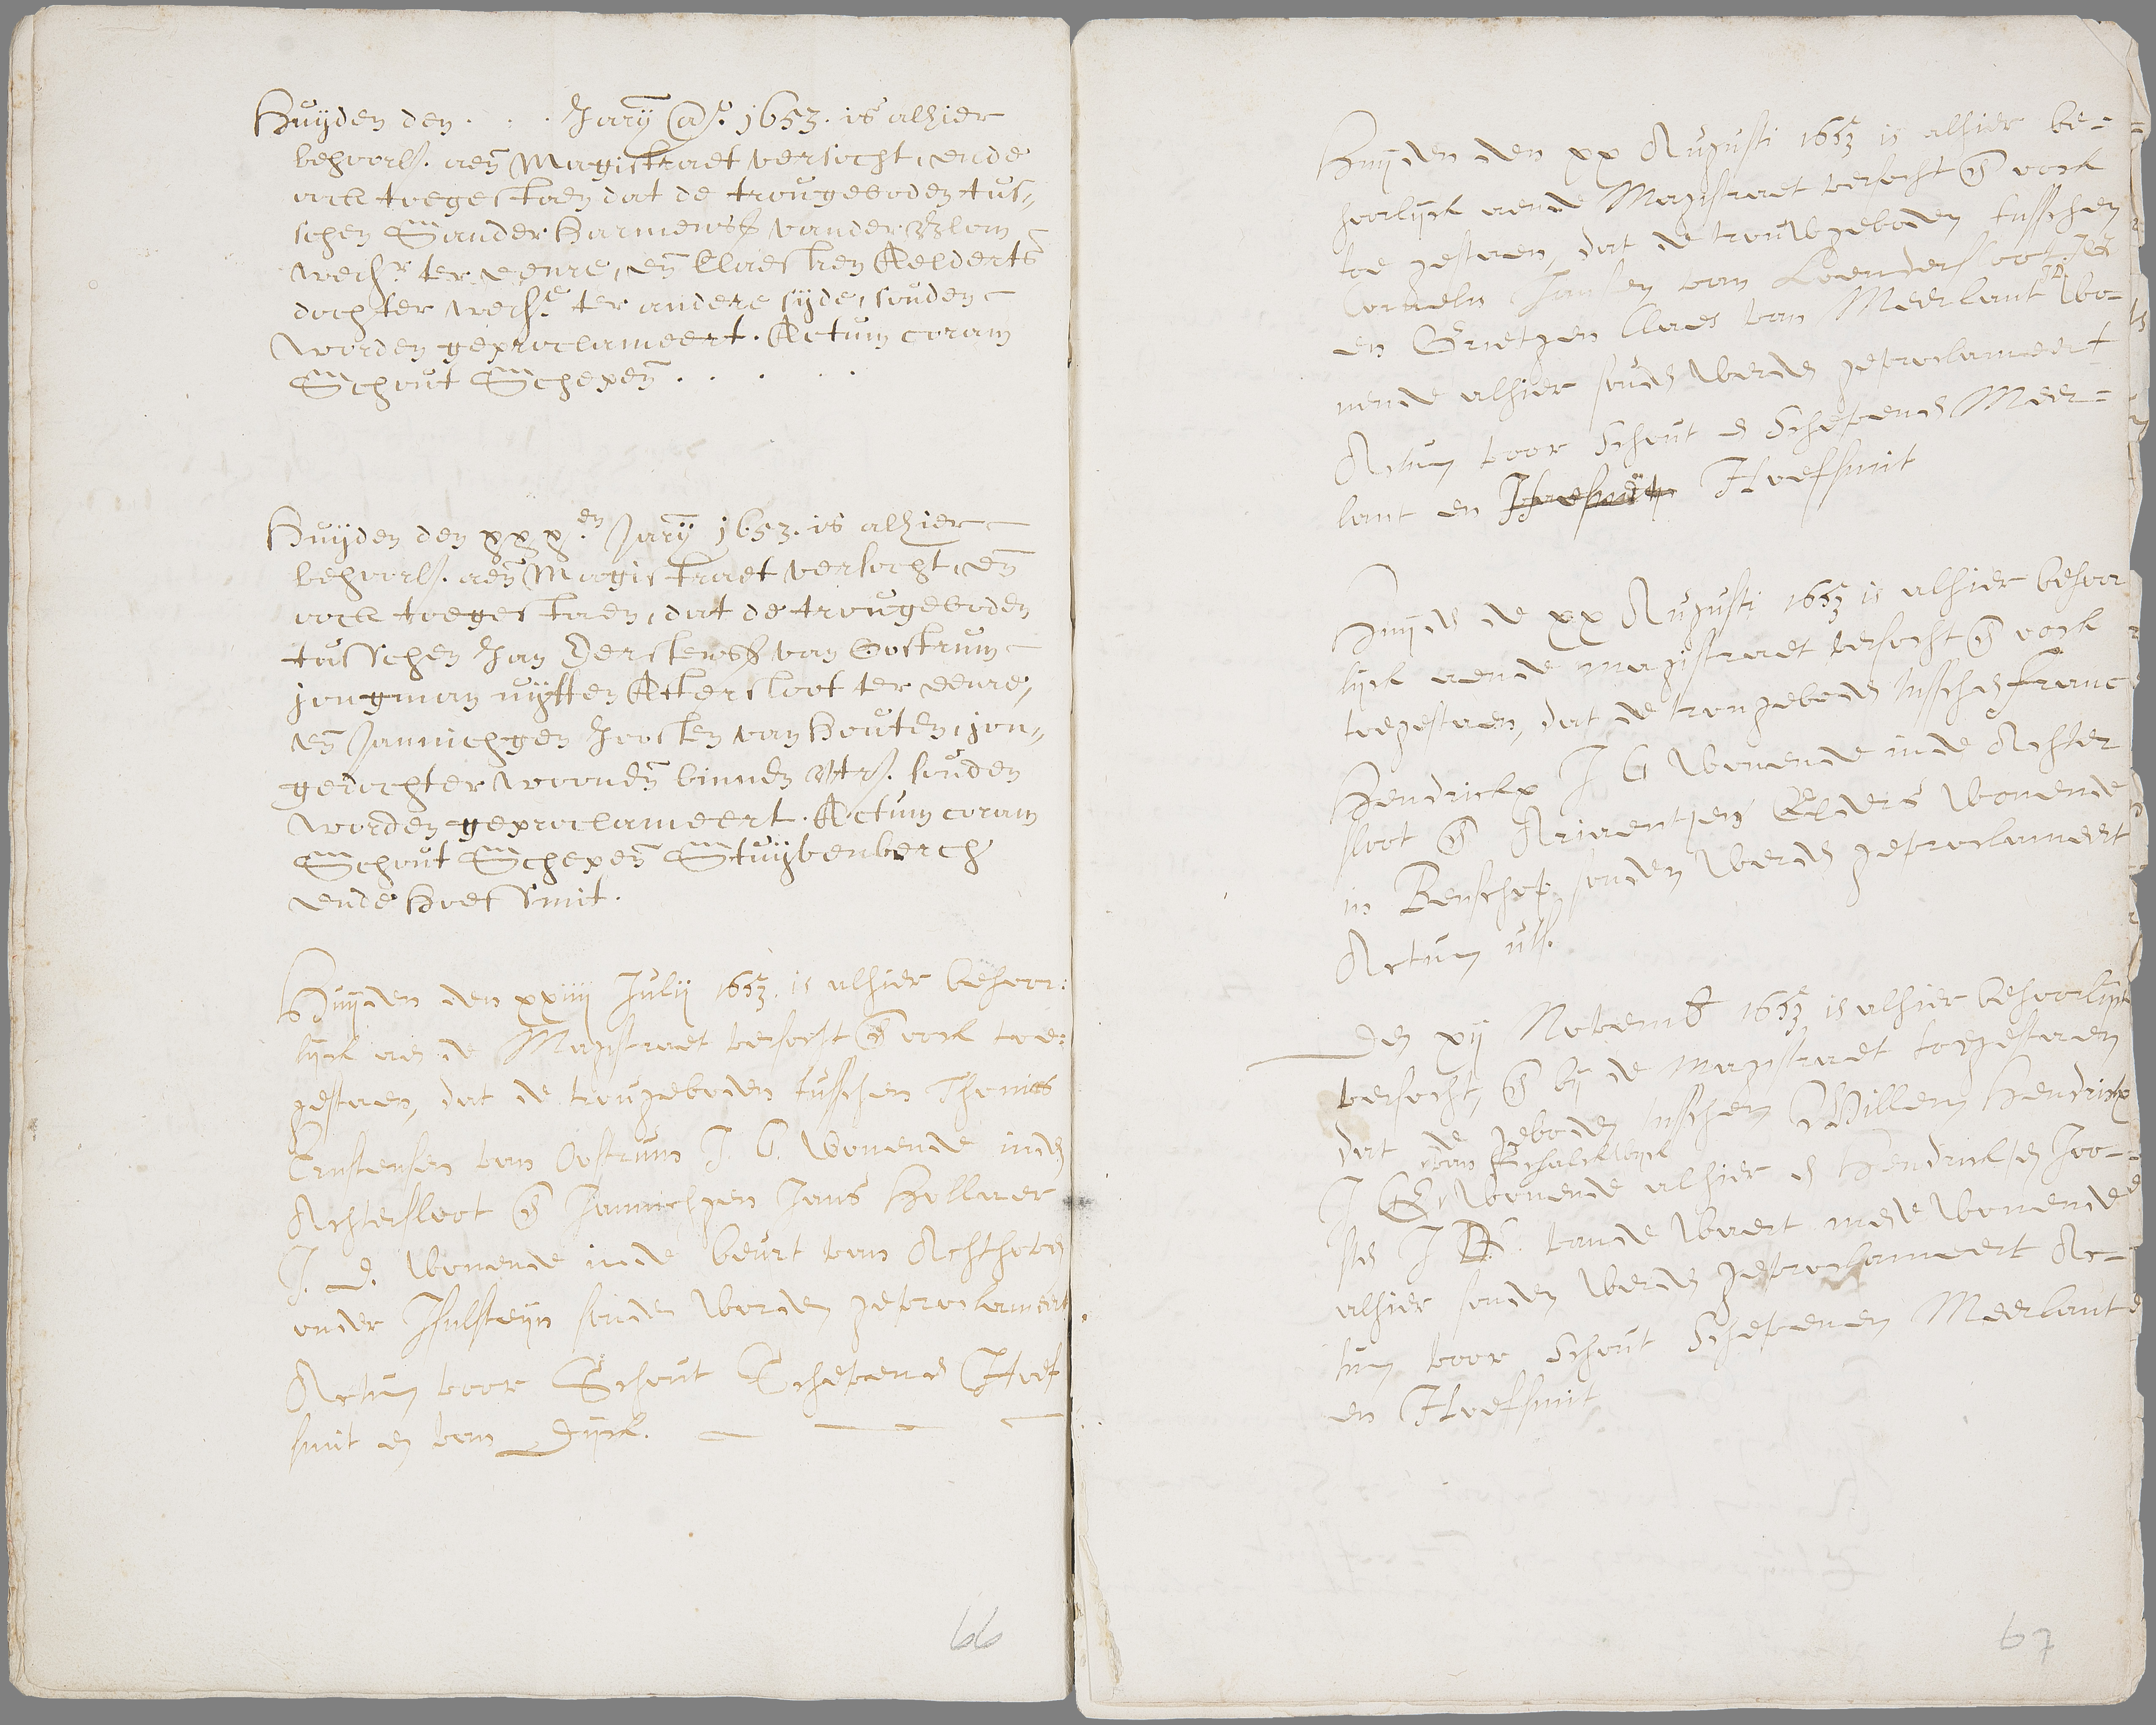 Huijden den . . . Jarij Ao. 1653. is alhier
behoorl. aen Magistraet versocht, ende
oock toegestaen dat de trougeboden tus-
schen Sander Harmensz vander
weds.r ter eenre, en Claesken Aelderts
dochter weds.e ter andere sijde, souden
worden geproclameert. Actum coram
Schout Schepen . . . . .
Huijden den xxx.en Jarij 1653. is alhier
behoorl. aen Magistraet versocht, en
oock toegestaen, dat de trougeboden
tusschen Jan Derckensz van Oostrum
jongman uijtten Achtersloot ter eenre,
en Jannichgen Joosten van Houten, jon-
gedochter woonen binnen Utr. souden
worden geproclameert. Actum coram
Schout Schepen Stuijvenberch
ende Hoefsmit.
Huijden den xxiiij Julij 1653. is alhier behoor:
lijck aen de Magistraet versocht en oock toe:
gestaen, dat de trougeboden tusschen Thonis
van Oostrum J. G. wonende inde
Achtersloot en Jannichgen Jans Hollaer
J. D. wonende inde beurt van Achthoven
onder Iselsteijn souden worden geproclameert
Actum voor Schout Schepenen Hoef
smit en van Dijck.
66
Huijden den xx Augusti 1653 is alhier be-
hoorlijck aende Magistraet versocht en oock
toe gestaen, dat de trouwgeboden tusschen
Cornelis Jansen van Loendersloot J.G.
en Grietgen Claes van Meerlant J.D. wo-
nende alhier souden werden geproclameert
Actum voor Schout en Schepenen Meer-
lant en Hoefsmit
Huijden de xx Augusti 1653 is alhier behoor
lijck aende magistraet versocht en oock
toegestaen, dat de trougeboden tusschen Franc
Hendrickx J G wonende inde Achter
sloot en Ariaentgen wonende
in Benschop souden werden geproclameert
Actum uts.
Den xij Novemb 1653 is alhier behoorlijck
versocht, en bij de magistraet toegestaen
dat de geboden tusschen Willem Hendrickx
van Schalckwijck
J G. wonende alhier en Hendrickgen Joo-
sten J D. vande Waert mede wonende
alhier souden werden geproclameert Ac-
tum voor Schout Schepenen Meerlant
en Hoefsmit
67